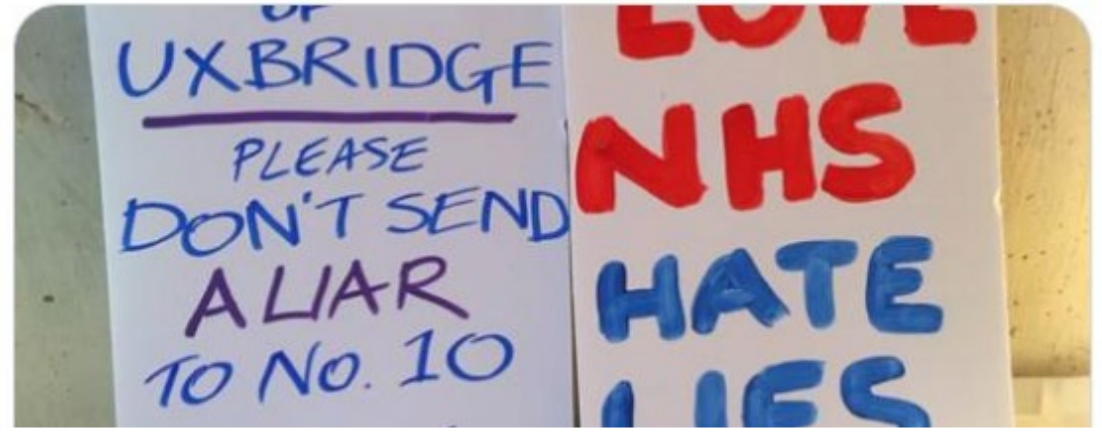 OF
UXBRIDGE
PLEASE
DON'T SEND
A LIAR
TO NO. 10
LOVE
NHS
HATE
LIES